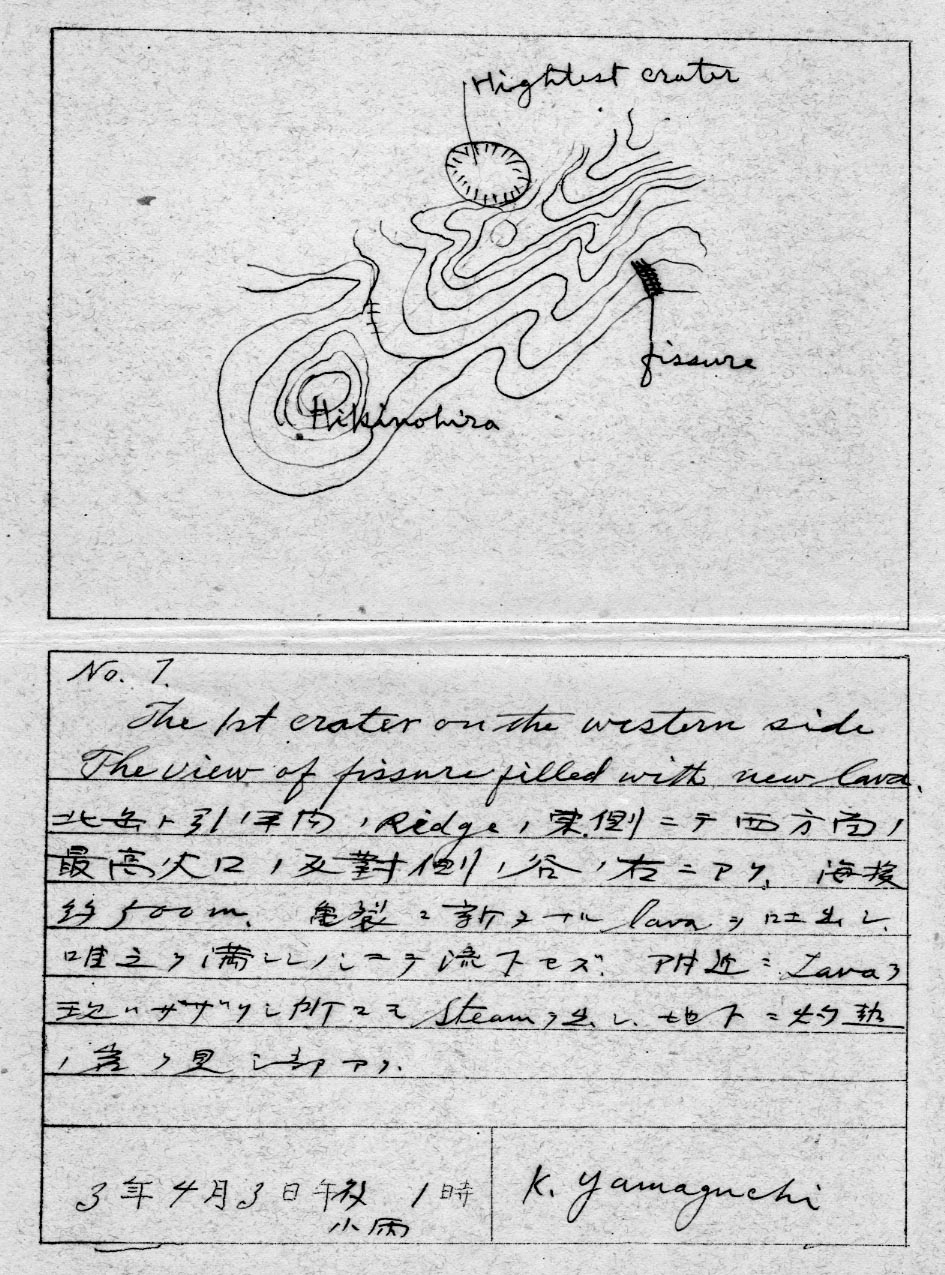 Hightest crater
fissure
Hikinohira
No. 7.
The 1st crater on the western side
The view of fissure filled with new lava.
北岳ト引ノ平間ノRidgeノ東側ニテ西方面ノ
最高火口ノ反對側ノ谷ノ右ニアリ、海拔
約500m. 亀裂ニ新タナル lavaヲ吐出シ
唯之ヲ満シシノミニテ流下セズ. 附近ニLavaヲ
現ハサザリシ所ニモ Steamヲ出シ、地下ニ灼熱
ノ見シ部アリ.
3年4月3日午後 1時
小雨
K. Yamaguchi